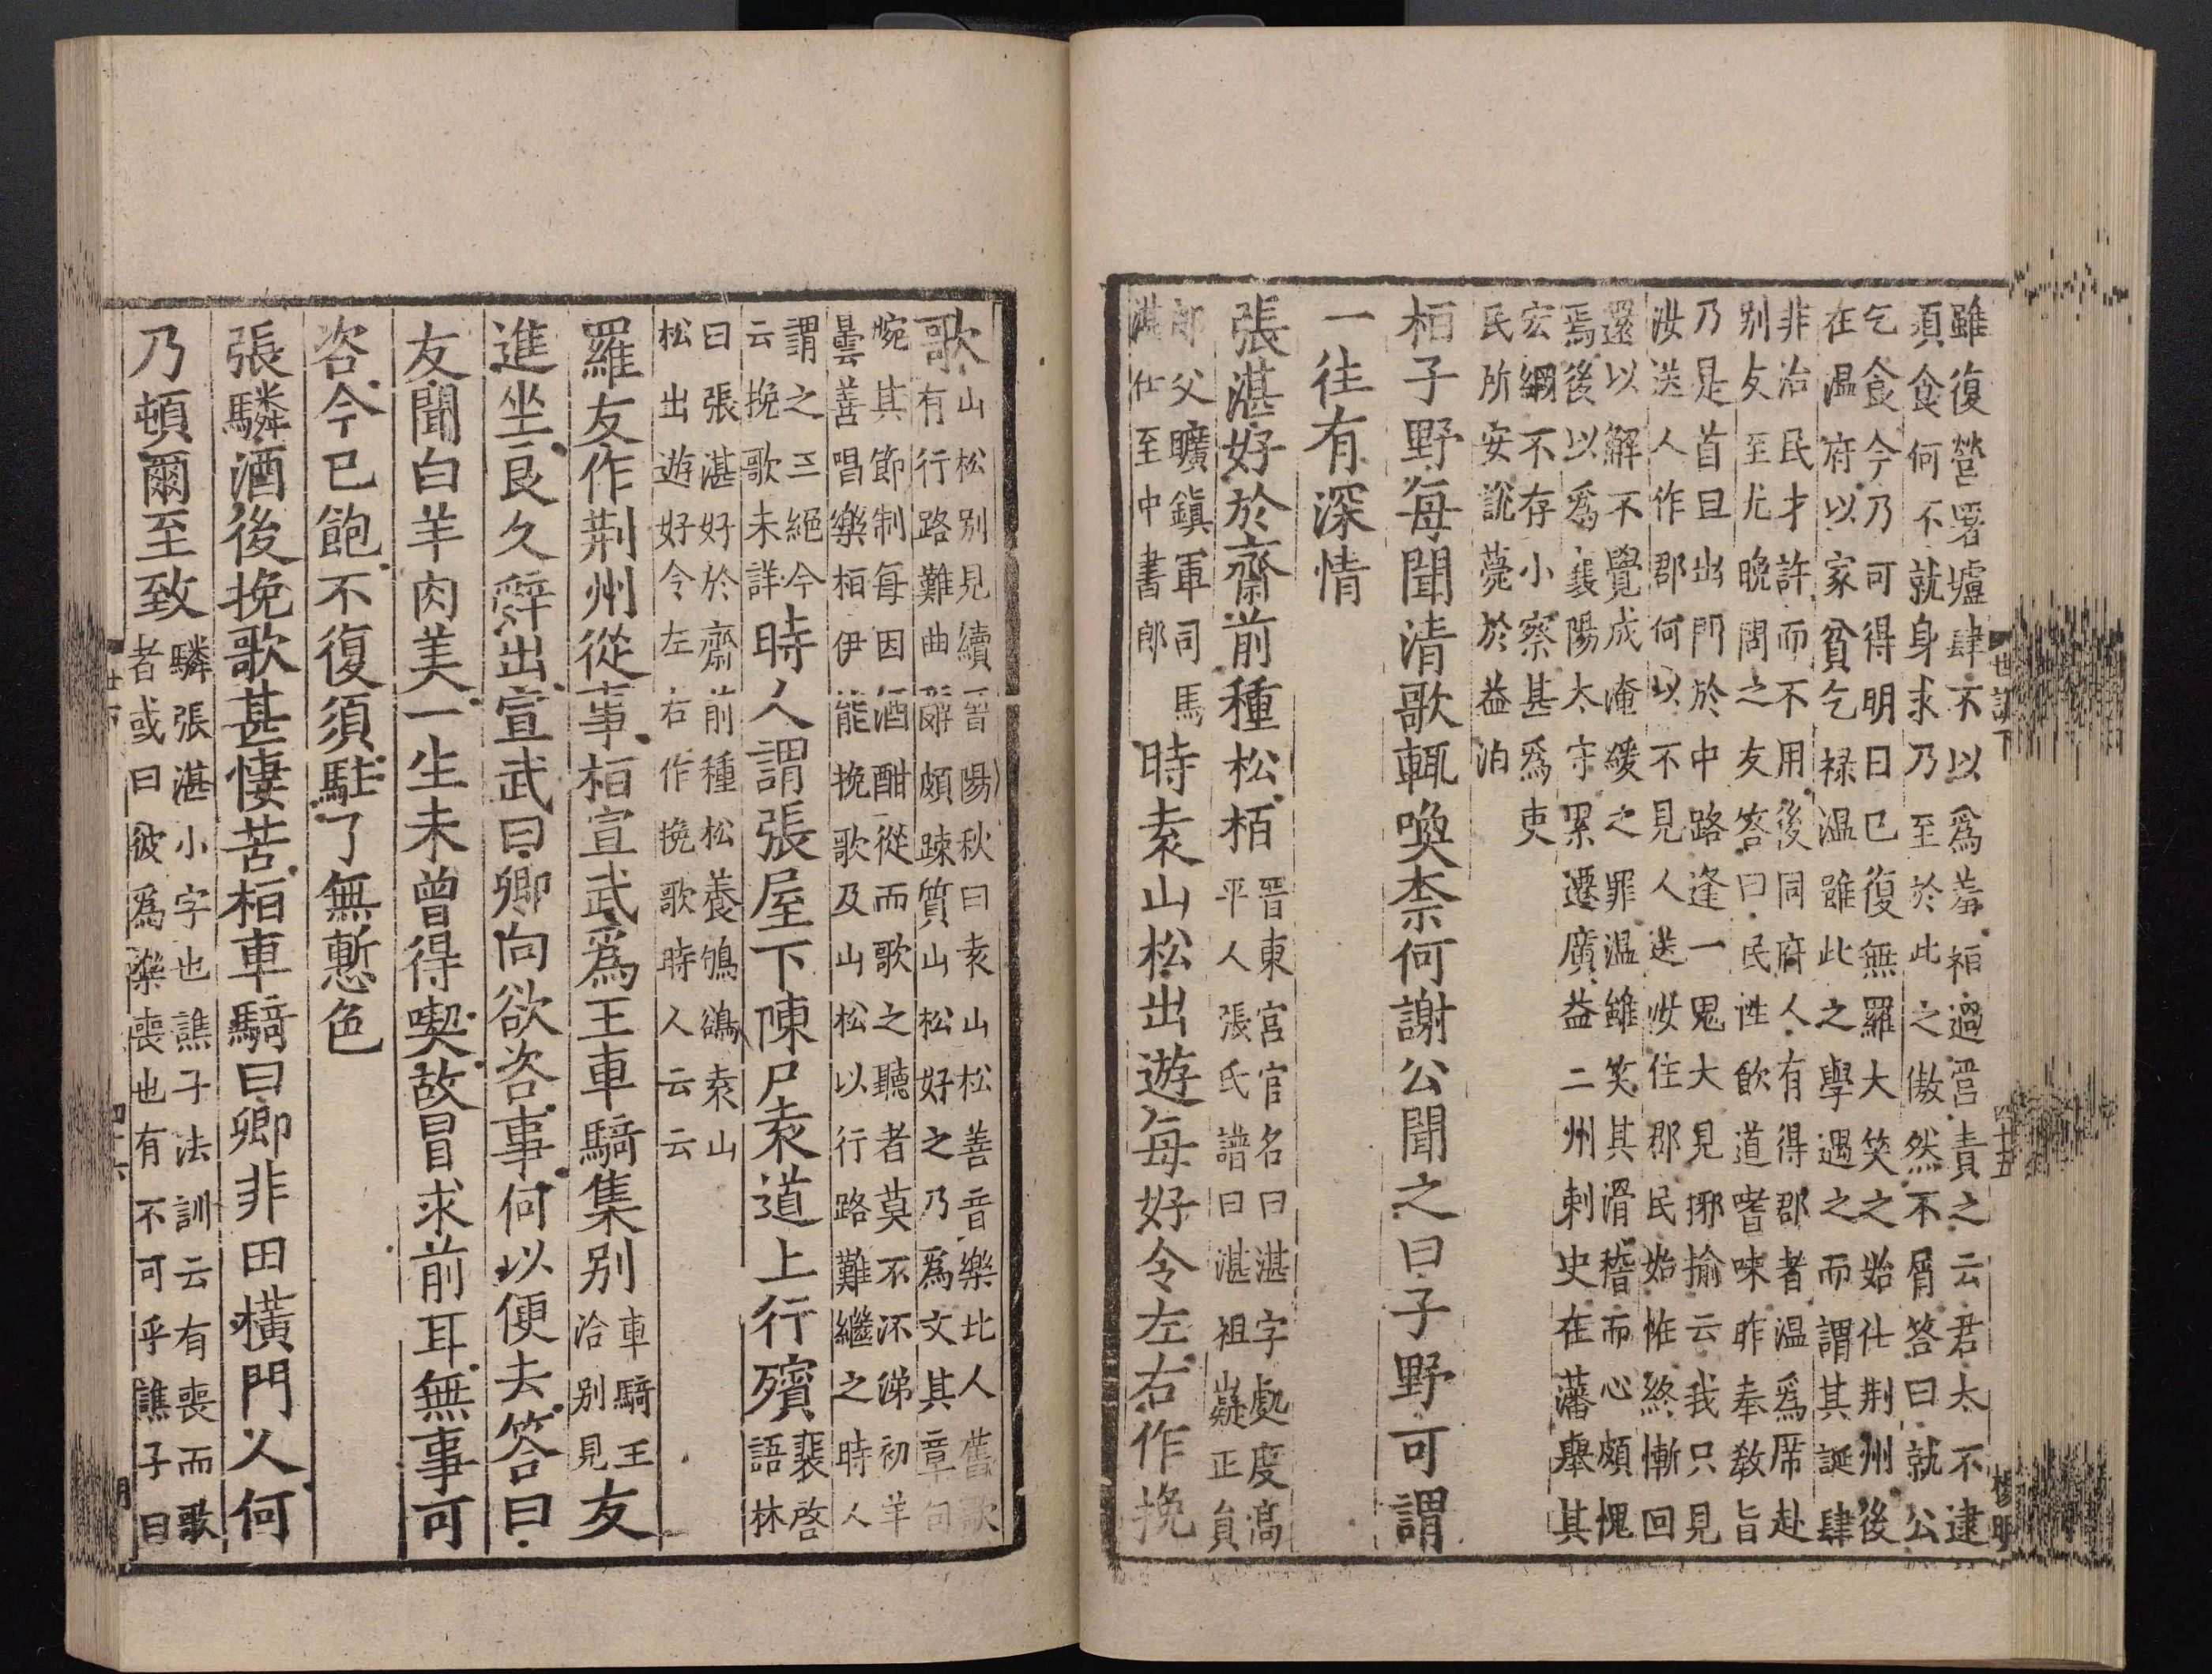 雖復營署壚肆不以爲羞桓溫嘗責之云君太不逮
須食何不就身求乃至於此之傲然不屑答曰就公
乞食今乃可得明日已復無羅大笑之始仕荆州後
在温府以家貧乞禄温雖此之學遇之而謂其誕肆
非治民才許而不用後同府人有得郡者温爲席赴
别友至尤晚問之友答曰民性飲道嗜味昨奉教旨
乃是首旦出門於中路逢一鬼大見揶揄云我只見
汝送人作郡何以不見人送汝住郡民始惟終慚回
還以解不覺成淹緩之罪温雖笑其滑稽而心頗愧
焉後以爲襄陽太守累遷廣益二州刺史在藩舉其
宏綱不存小察甚爲吏
民所安說薨於益泊
桓子野每聞清歌輒喚柰何謝公聞之曰子野可謂
一往有深情
張湛好於齋前種松栢
晋東宫官名曰湛字處度髙
平人張氏譜曰湛祖嶷正員
郎父曠鎮軍司馬
湛仕至中書郎
時袁山松出遊每好令左右作挽
歌
山松别見續晋陽秋曰袁山松善音樂比人舊歌
有行路難曲辭頗踈質山松好之乃爲文其章句
婉其節制每因酒酣從而歌之聽者莫不沠涕初羊
曇善唱樂桓伊能挽歌及山松以行路難繼之時人
謂之三絕今
云挽歌未詳
時人謂張屋下陳尸袁道上行殯
裴啓
語林
曰張湛好於齋前種松養鴝鵒袁山
松出遊好令左右作挽歌時人云云
羅友作荆州從事桓宣武爲王車騎集别
車騎王
洽别見
友
進坐良久辭出宣武曰卿向欲咨事何以便去答曰
友聞白羊肉美一生未曾得喫故冒求前耳無事可
咨今已飽不復須駐了無慙色
張驎酒後挽歌甚悽苦桓車騎曰卿非田橫門人何
乃頓爾至致
驎張湛小字也譙子法訓云有喪而歌
者或曰彼爲樂喪也有不可乎譙子曰
世說下
四十五
楊明
世下
四十六
明